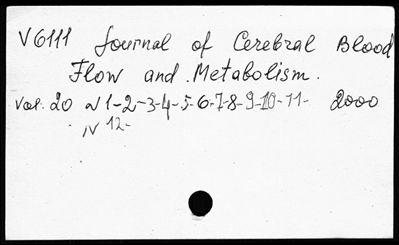 V6111 Journal of Cerebral Blood
Flow and Metabolism.
Vol. 20 N1-2-3-4-5-6-7-8-9-10-11- 2000
N 12-